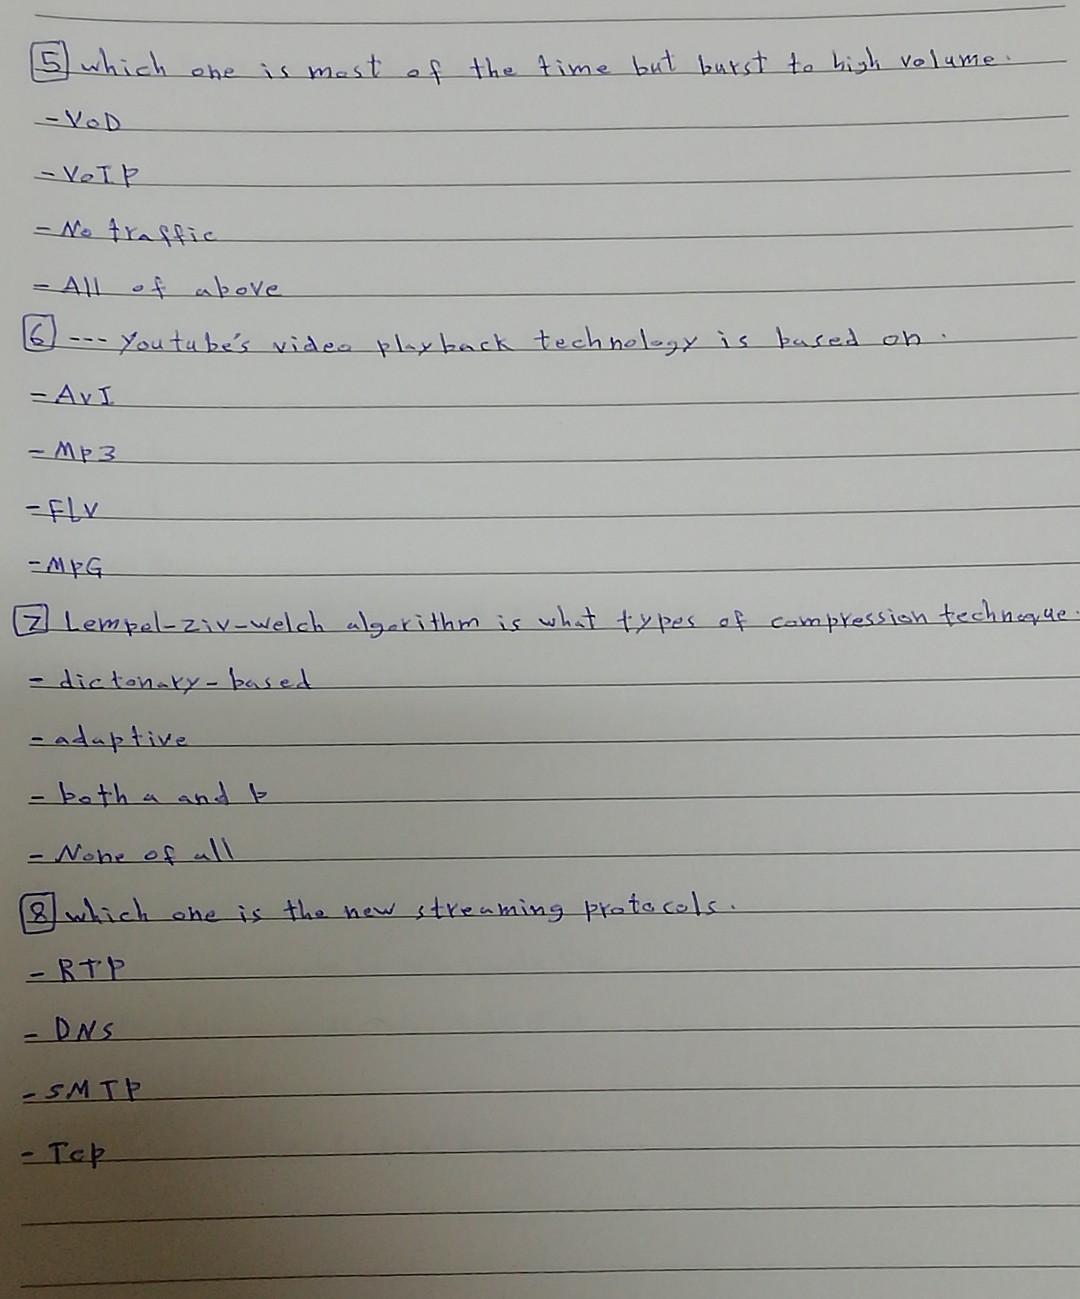 5 which one is most of the time but burst to high volume.
- VoD
- VoIP
- No traffic
- All of above
6 --- Youtube's video playback technology is based on.
- AvI
- Mp3
- FLV
- MPG
7 Lempel-ziv-welch algorithm is what types of compression techneque.
- dictonary-based
- adaptive
- both a and b
- None of all
8 which one is the new streaming protocols.
- RTP
- DNS
- SMTP
- Tcp